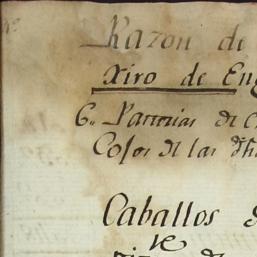 Razon de
Xiro de Eng
6.. Parrias de C
Cosos de las dha
Caballos d
ve